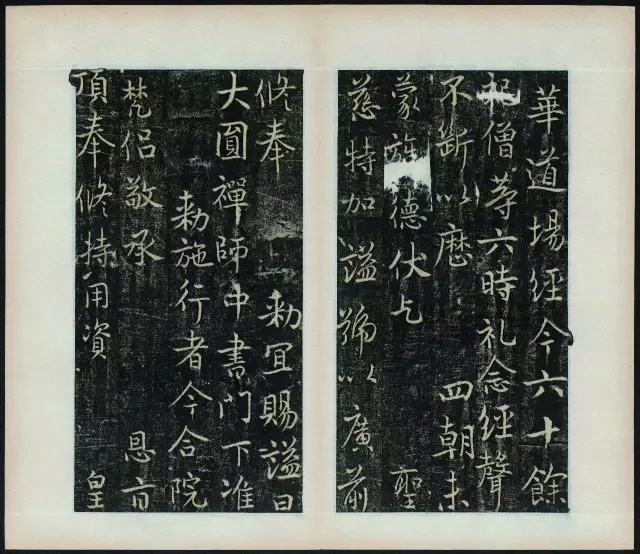 華道場經今六十餘
祀僧䓁六時礼念經聲
不断以麽 四朝未
蒙旌德伏乞 聖
慈特加謚號以廣前
修奉 勅宜賜謚曰
大圓禪師中書門下准
勅施行者今合院
梵侣敬承 恩旨
頂奉修持用資 皇